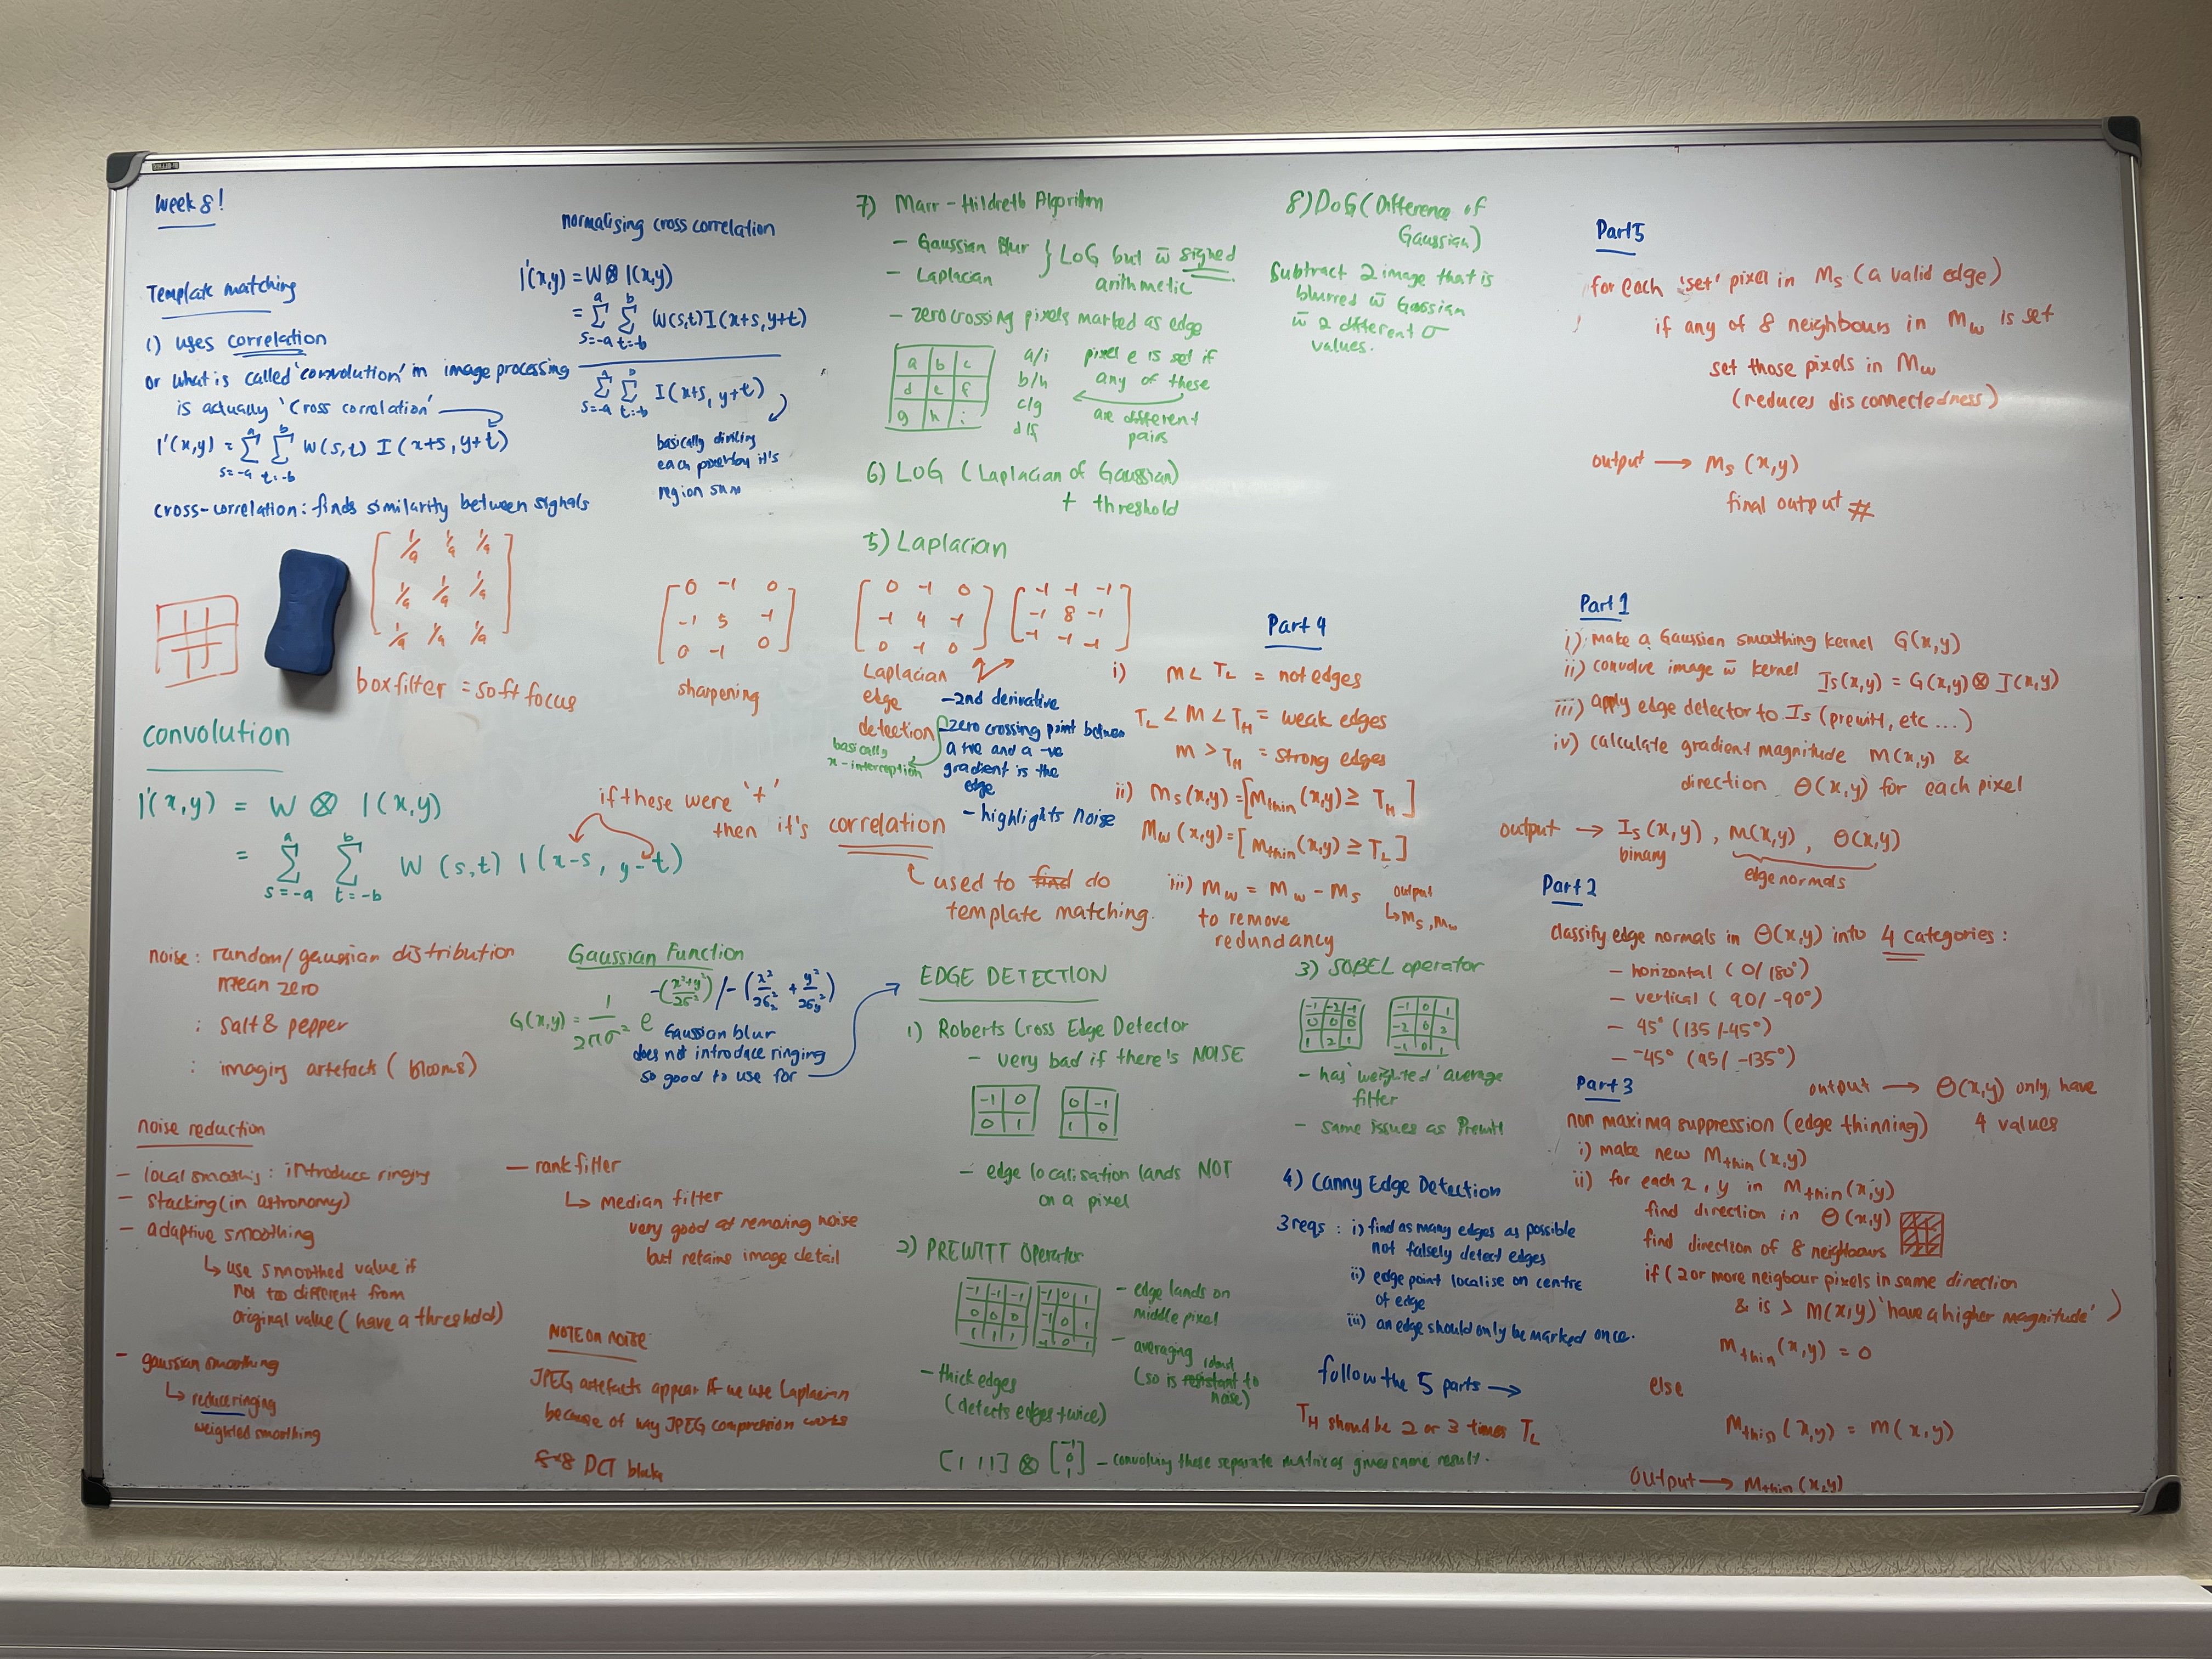 Week 8!
Template matching
1) uses correlation
or what is called 'convolution' in image processing
is actually 'cross correlation'
I'(x,y) = Σ Σ W(s,t) I(x+s, y+t)
s=-a t=-b
a b
cross-correlation: finds similarity between signals
normalising cross correlation
I'(x,y) = W ⊗ I(x,y)
a b
= Σ Σ W(s,t) I(x+s, y+t)
s=-a t=-b
a b
Σ Σ I(x+s, y+t)
s=-a t=-b
basically dividing
each pixel by it's
region sum
1/9 1/9 1/9
1/9 1/9 1/9
1/9 1/9 1/9
box filter = soft focus
0 -1 0
-1 5 -1
0 -1 0
sharpening
convolution
I'(x,y) = W ⊗ I(x,y)
a b
= Σ Σ W(s,t) I(x-s, y-t)
s=-a t=-b
if these were '+'
then it's correlation
used to find do
template matching.
noise: random/gaussian distribution
mean zero
: salt & pepper
: imaging artefacts (blooms)
noise reduction
- local smoothing: introduce ringing
- stacking (in astronomy)
- adaptive smoothing
↳ use smoothed value if
not too different from
original value (have a threshold)
- gaussian smoothing
↳ reduce ringing
weighted smoothing
- rank filter
↳ median filter
very good at removing noise
but retains image detail
NOTE ON NOISE
JPEG artefacts appear if we use Laplacian
because of way JPEG compression works
8×8 DCT blocks
Gaussian Function
G(x,y) = 1/2πσ² e -(x²+y²/2σ²) / -(x²/2σx² + y²/2σy²)
Gaussian blur
does not introduce ringing
so good to use for →
7) Marr-Hildreth Algorithm
- Gaussian Blur
- Laplacian
} LoG but w̄ signed
arithmetic
- zero crossing pixels marked as edge
a b c
d e f
g h i
a/i
b/h
c/g
d/f
pixel e is set if
any of these
are different
pairs
6) LoG (Laplacian of Gaussian)
+ threshold
5) Laplacian
0 -1 0
-1 4 -1
0 -1 0
-1 -1 -1
-1 8 -1
-1 -1 -1
Laplacian
edge
detection
basically
x-interception
- 2nd derivative
- zero crossing point between
a +ve and a -ve
gradient is the
edge
- highlights noise
EDGE DETECTION
1) Roberts Cross Edge Detector
- very bad if there's NOISE
-1 0
0 1
0 -1
1 0
- edge localisation lands NOT
on a pixel
2) PREWITT Operator
-1 -1 -1
0 0 0
1 1 1
-1 0 1
-1 0 1
-1 0 1
- edge lands on
middle pixel
- averaging
robust
(so is resistant to
noise)
- thick edges
(detects edges twice)
[1 1 1] ⊗ [-1 0 1] - convolving these separate matrices gives same result.
8) DoG (Difference of
Gaussian)
Subtract 2 image that is
blurred w̄ Gaussian
w̄ 2 different σ
values.
Part 4
i) M < TL = not edges
TL < M < TH = weak edges
M > TH = strong edges
ii) Ms(x,y) = [Mthin(x,y) ≥ TH]
Mw(x,y) = [Mthin(x,y) ≥ TL]
iii) Mw = Mw - Ms
to remove
redundancy
output
↳ Ms, Mw
3) SOBEL operator
-1 -2 -1
0 0 0
1 2 1
-1 0 1
-2 0 2
-1 0 1
- has 'weighted' average
filter
- same issues as Prewitt
4) Canny Edge Detection
3 reqs : i) find as many edges as possible
not falsely detect edges
ii) edge point localise on centre
of edge
iii) an edge should only be marked once.
follow the 5 parts →
TH should be 2 or 3 times TL
Part 5
for each 'set' pixel in Ms (a valid edge)
if any of 8 neighbours in Mw is set
set those pixels in Mw
(reduces disconnectedness)
output → Ms(x,y)
final output #
Part 1
i) make a Gaussian smoothing kernel G(x,y)
ii) convolve image w̄ kernel Is(x,y) = G(x,y) ⊗ I(x,y)
iii) apply edge detector to Is (prewitt, etc ...)
iv) calculate gradient magnitude M(x,y) &
direction θ(x,y) for each pixel
output → Is(x,y), M(x,y), θ(x,y)
binary
edge normals
Part 2
classify edge normals in θ(x,y) into 4 categories:
- horizontal (0/180°)
- vertical (90/-90°)
- 45° (135/-45°)
- -45° (45/-135°)
output → θ(x,y) only have
4 values
Part 3
non maxima suppression (edge thinning)
i) make new Mthin(x,y)
ii) for each x, y in Mthin(x,y)
find direction in θ(x,y)
find direction of 8 neighbours
if (2 or more neigbour pixels in same direction
& is > M(x,y) 'have a higher magnitude')
Mthin(x,y) = 0
else
Mthin(x,y) = M(x,y)
output → Mthin(x,y)